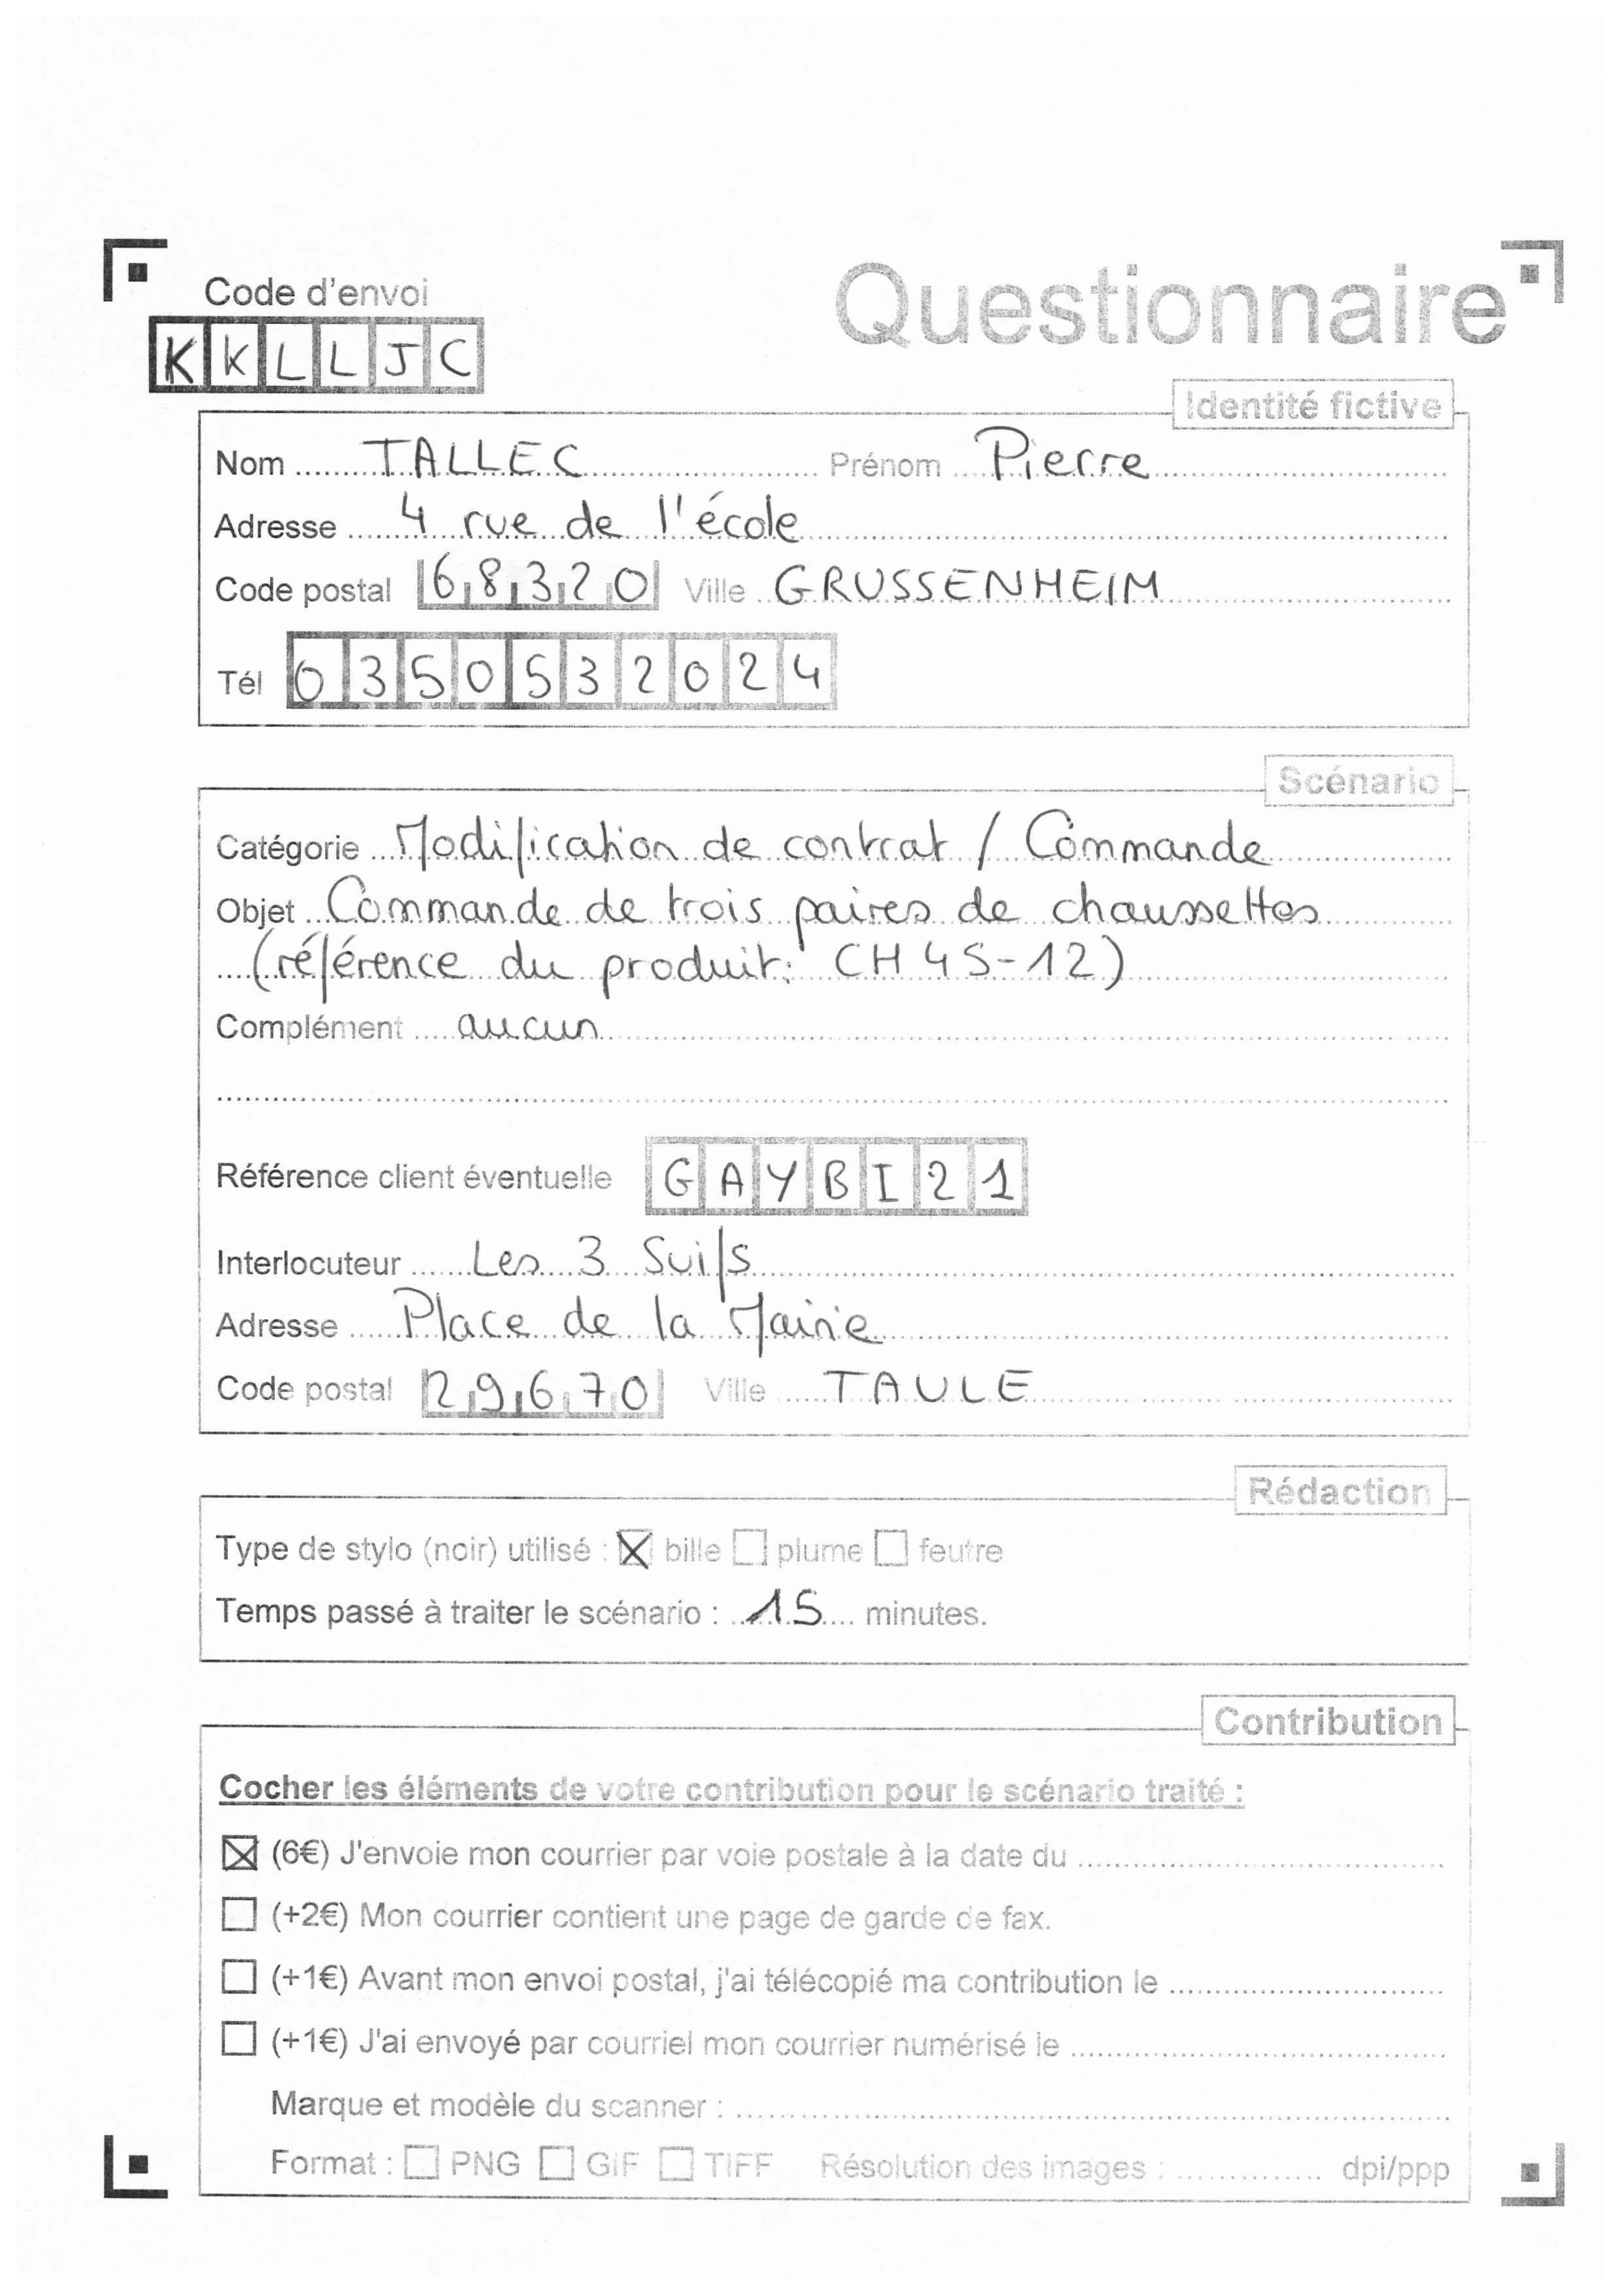 Code d'envoi
KKLLJC
Questionnaire
Identité fictive
Nom TALLEC Prénom Pierre
Adresse 4 rue de l'école
Code postal 68320 Ville GRUSSENHEIM
Tél 0350532024
Scénario
Catégorie Modification de contrat / Commande
Objet Commande de trois paires de chaussettes
(référence du produit: CH4S-12)
Complément aucun
Référence client éventuelle GAYBI21
Interlocuteur Les 3 Suifs
Adresse Place de la Mairie
Code postal 29670 Ville TAULE
Rédaction
Type de stylo (noir) utilisé : ☒ bille ☐ plume ☐ feutre
Temps passé à traiter le scénario : 15 minutes.
Contribution
Cocher les éléments de votre contribution pour le scénario traité :
☒ (6€) J'envoie mon courrier par voie postale à la date du
☐ (+2€) Mon courrier contient une page de garde de fax.
☐ (+1€) Avant mon envoi postal, j'ai télécopié ma contribution le
☐ (+1€) J'ai envoyé par courriel mon courrier numérisé le
Marque et modèle du scanner :
Format : ☐ PNG ☐ GIF ☐ TIFF Résolution des images : dpi/ppp